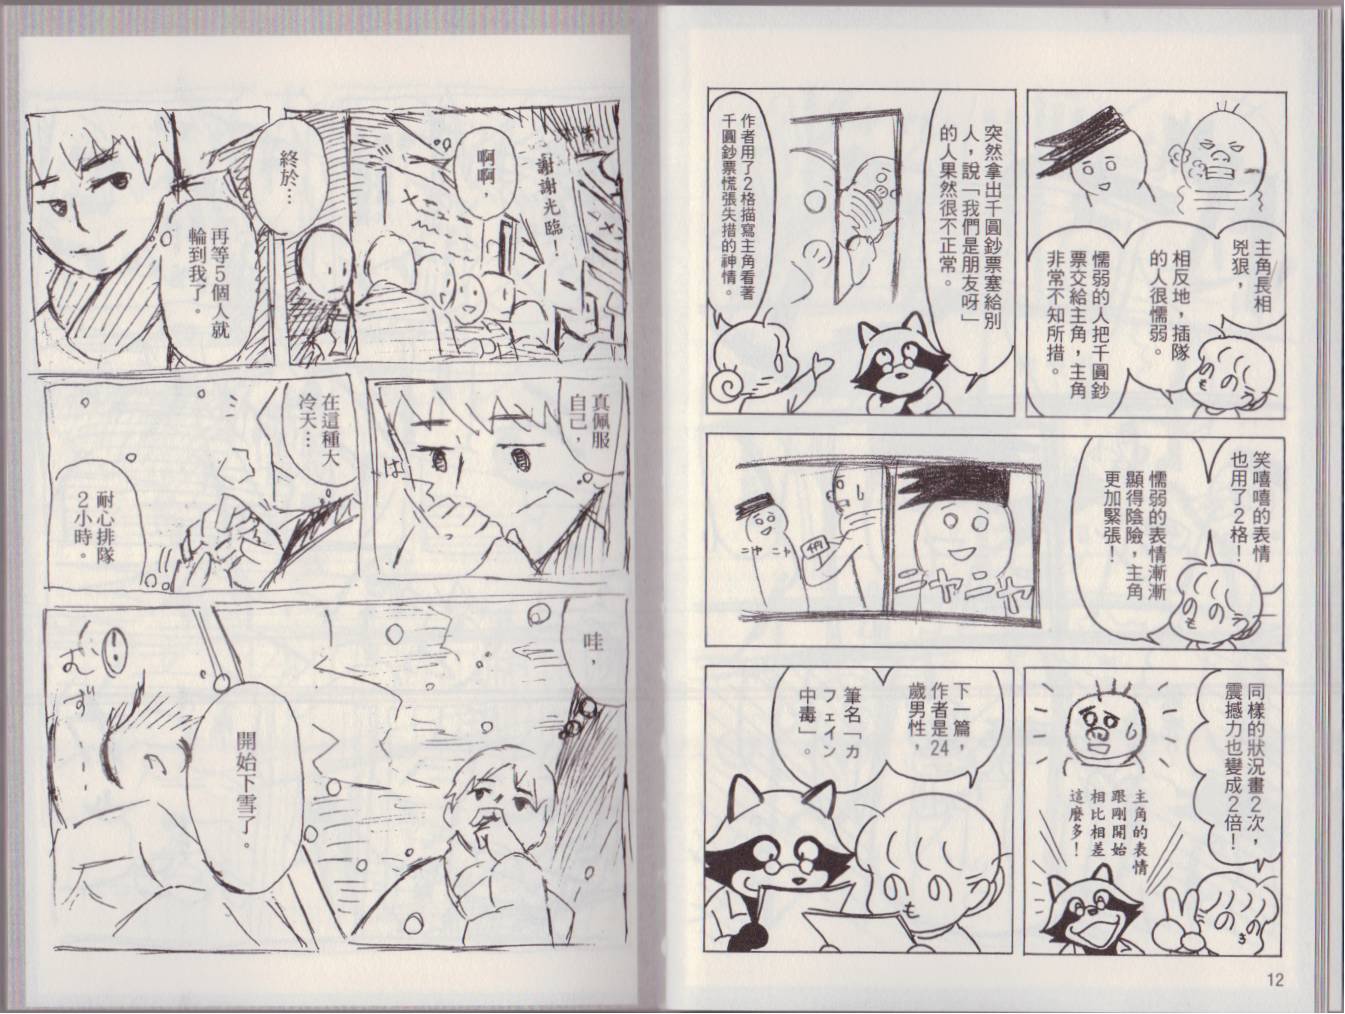 主角長相
兇狠，
相反地，插隊
的人很懦弱。
懦弱的人把千圓鈔
票交給主角，主角
非常不知所措。
突然拿出千圓鈔票塞給別
人，說「我們是朋友呀」
的人果然很不正常。
作者用了2格描寫主角看著
千圓鈔票慌張失措的神情。
笑嘻嘻的表情
也用了2格！
懦弱的表情漸漸
顯得陰險，主角
更加緊張！
ニヤニヤ
ニヤ ニヤ
同樣的狀況畫2次，
震撼力也變成2倍！
主角的表情
跟剛開始
相比相差
這麼多！
下一篇，
作者是24
歲男性，
筆名「カ
フェイン
中毒」。
12
謝謝光臨！
啊啊，
終於…
再等5個人就
輪到我了。
真佩服
自己，
は
在這種大
冷天…
耐心排隊
2小時。
哇，
開始下雪了。
！
むず